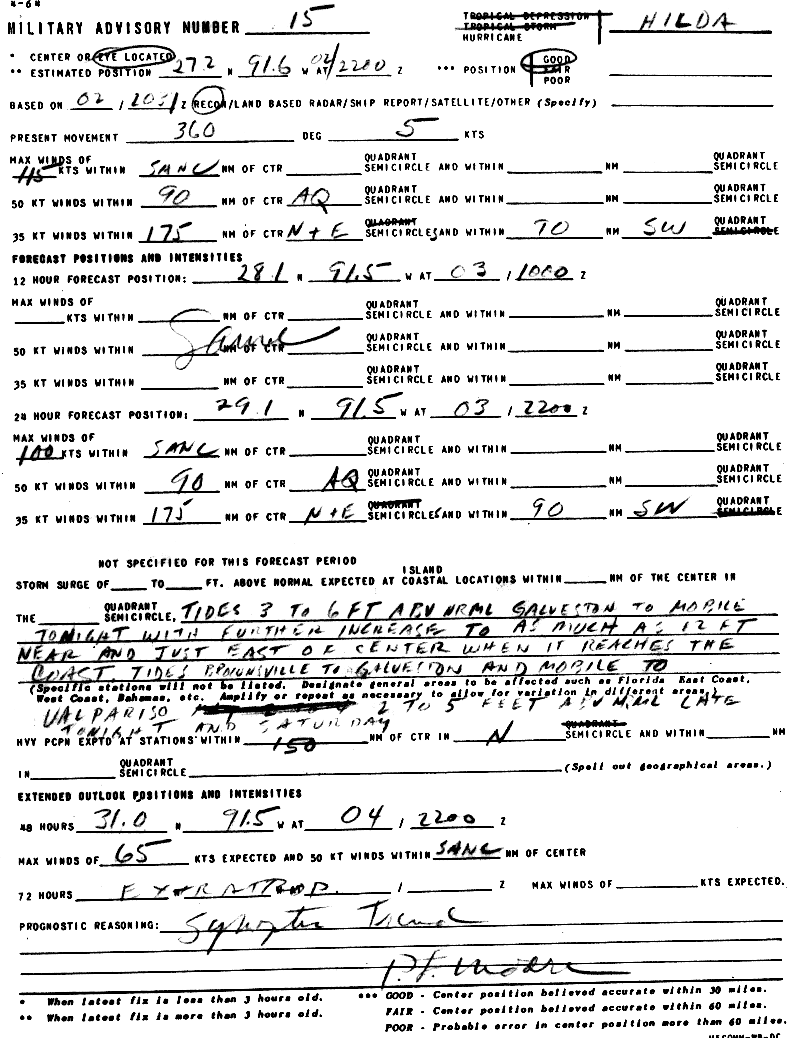 MILITARY ADVISORY NUMBER 15 TROPICAL DEPRESSION HILDA
TROPICAL STORM
HURRICANE
* CENTER OR EYE LOCATED
** ESTIMATED POSITION 27.2 N 91.6 W AT 02/2200 Z *** POSITION GOOD
FAIR
POOR
BASED ON 02 / 2031 Z RECON/LAND BASED RADAR/SHIP REPORT/SATELLITE/OTHER (Specify)
PRESENT MOVEMENT 360 DEG 5 KTS
MAX WINDS OF QUADRANT QUADRANT
115 KTS WITHIN SANC NM OF CTR SEMICIRCLE AND WITHIN NM SEMICIRCLE
50 KT WINDS WITHIN 90 NM OF CTR AQ QUADRANT SEMICIRCLE AND WITHIN NM QUADRANT SEMICIRCLE
35 KT WINDS WITHIN 175 NM OF CTR N + E QUADRANT SEMICIRCLES AND WITHIN 90 NM SW QUADRANT SEMICIRCLE
FORECAST POSITIONS AND INTENSITIES
12 HOUR FORECAST POSITION: 28.1 N 91.5 W AT 03 / 1000 Z
MAX WINDS OF QUADRANT QUADRANT
KTS WITHIN NM OF CTR SEMICIRCLE AND WITHIN NM SEMICIRCLE
50 KT WINDS WITHIN Same NM OF CTR QUADRANT SEMICIRCLE AND WITHIN NM QUADRANT SEMICIRCLE
35 KT WINDS WITHIN NM OF CTR QUADRANT SEMICIRCLE AND WITHIN NM QUADRANT SEMICIRCLE
24 HOUR FORECAST POSITION: 29.1 N 91.5 W AT 03 / 2200 Z
MAX WINDS OF QUADRANT QUADRANT
100 KTS WITHIN SANC NM OF CTR SEMICIRCLE AND WITHIN NM SEMICIRCLE
50 KT WINDS WITHIN 90 NM OF CTR AQ QUADRANT SEMICIRCLE AND WITHIN NM QUADRANT SEMICIRCLE
35 KT WINDS WITHIN 175 NM OF CTR N+E QUADRANT SEMICIRCLES AND WITHIN 90 NM SW QUADRANT SEMICIRCLE
NOT SPECIFIED FOR THIS FORECAST PERIOD
ISLAND
STORM SURGE OF TO FT. ABOVE NORMAL EXPECTED AT COASTAL LOCATIONS WITHIN NM OF THE CENTER IN
THE QUADRANT SEMICIRCLE, TIDES 3 TO 6 FT ABV NRML GALVESTON TO MOBILE
TONIGHT WITH FURTHER INCREASE TO AS MUCH AS 12 FT
NEAR AND JUST EAST OF CENTER WHEN IT REACHES THE
COAST. TIDES BROWNSVILLE TO GALVESTON AND MOBILE TO
(Specific stations will not be listed. Designate general areas to be affected such as Florida East Coast,
West Coast, Bahamas, etc. Amplify or repeat as necessary to allow for variation in different areas)
VALPARISO 2 TO 5 FEET ABV NRML LATE
TONIGHT AND SATURDAY
HVY PCPN EXPTD AT STATIONS WITHIN 150 NM OF CTR IN N QUADRANT SEMICIRCLE AND WITHIN NM
IN QUADRANT SEMICIRCLE (Spell out geographical areas.)
EXTENDED OUTLOOK POSITIONS AND INTENSITIES
48 HOURS 31.0 N 91.5 W AT 04 / 2200 Z
MAX WINDS OF 65 KTS EXPECTED AND 50 KT WINDS WITHIN SANC NM OF CENTER
72 HOURS EXTRATROP. / Z MAX WINDS OF KTS EXPECTED.
PROGNOSTIC REASONING: Synoptic Trend
P.L. Moore
* When latest fix is less than 3 hours old. *** GOOD - Center position believed accurate within 30 miles.
** When latest fix is more than 3 hours old. FAIR - Center position believed accurate within 60 miles.
POOR - Probable error in center position more than 60 miles.